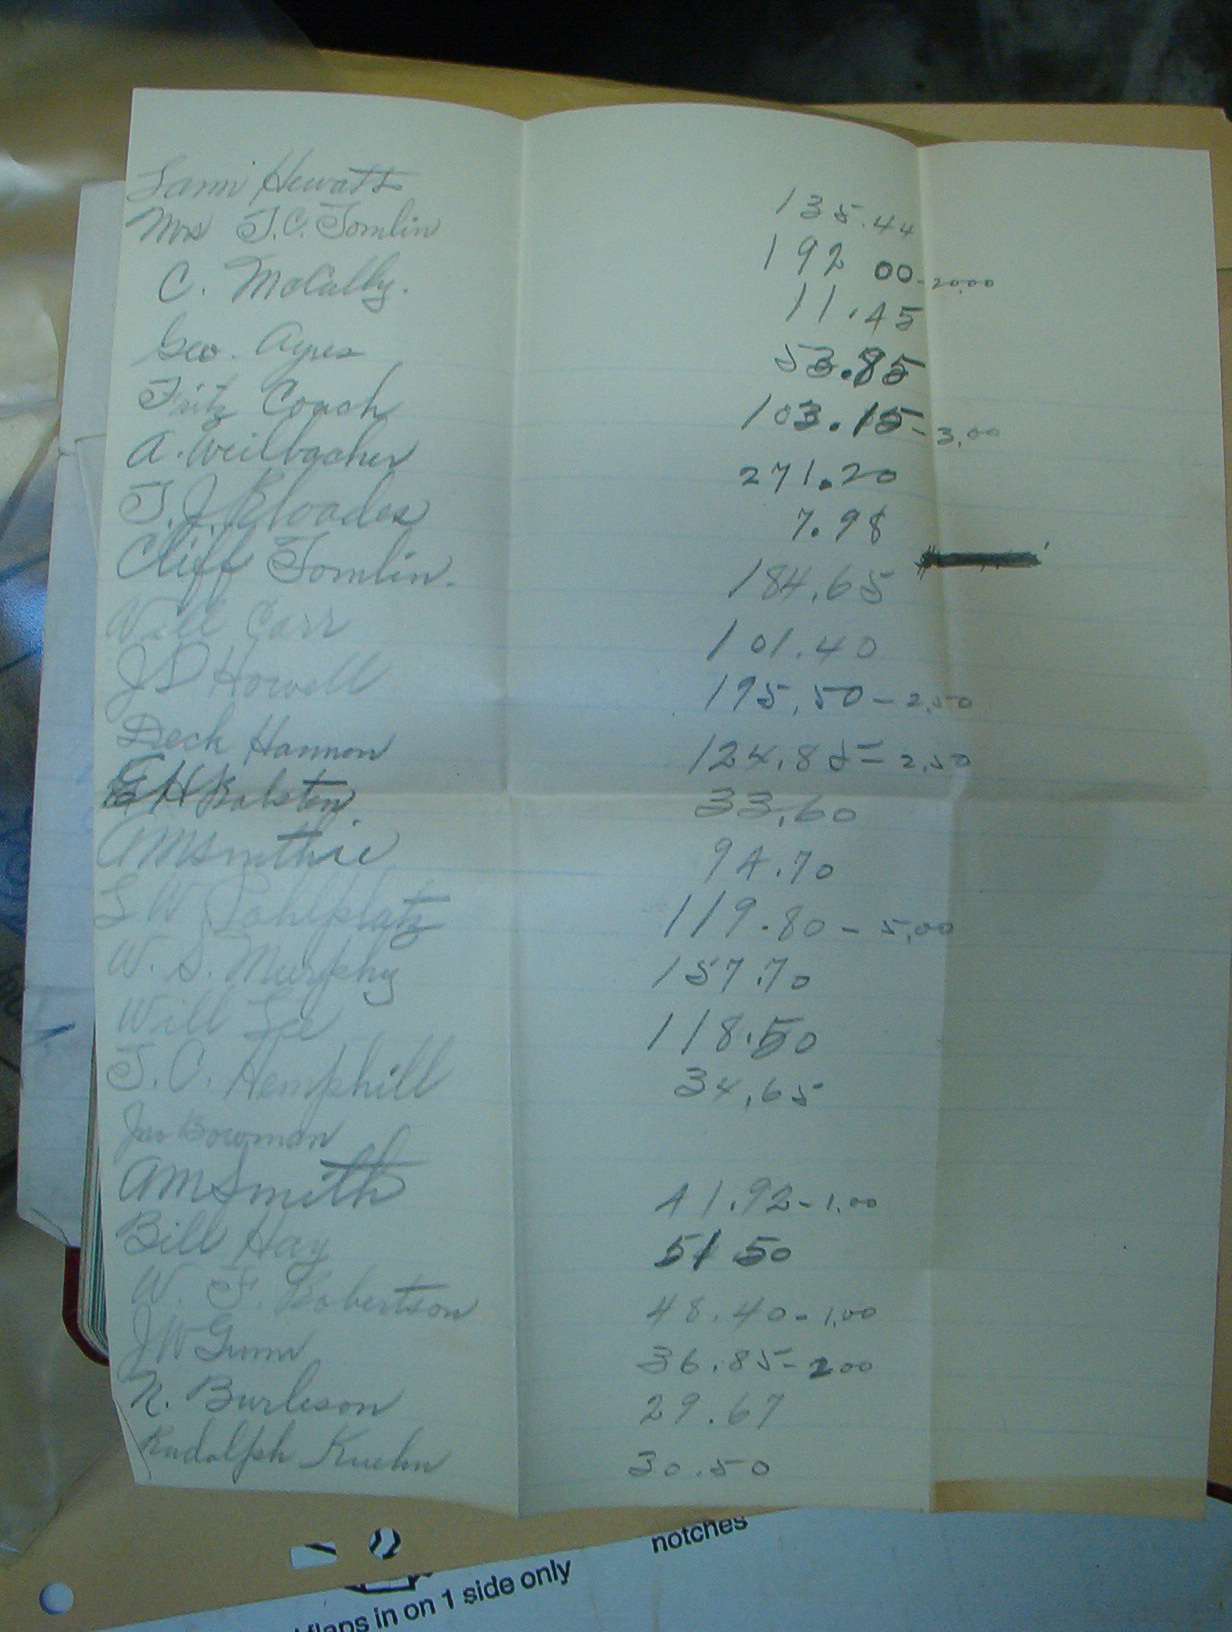 Sam Hewatt 135.44
Mrs T.C. Tomlin 192 00-20.00
C. McCally. 11.45
Geo. Ayres 53.85
Fritz Coach 103.15-3.00
A. Weilbacher 271.20
T.J. Rhoades 7.98
Cliff Tomlin. 184.65
Will Carr 101.40
J D Howell 195.50-2.50
Deck Hannon 124.85-2.50
H Ralston 33.60
AM Smithie 94.70
L W Pohlplatz 119.80-5.00
W. S. Murphy 157.70
Will Lee 118.50
J. O. Hemphill 34.65
Jno Bowman
AM Smith 41.92-1.00
Bill Hay 51 50
W. F. Robertson 48.40-1.00
JW Gunn 36.85-2.00
N. Burleson 29.67
Rudolph Kuehn 30.50
notches
flaps in on 1 side only